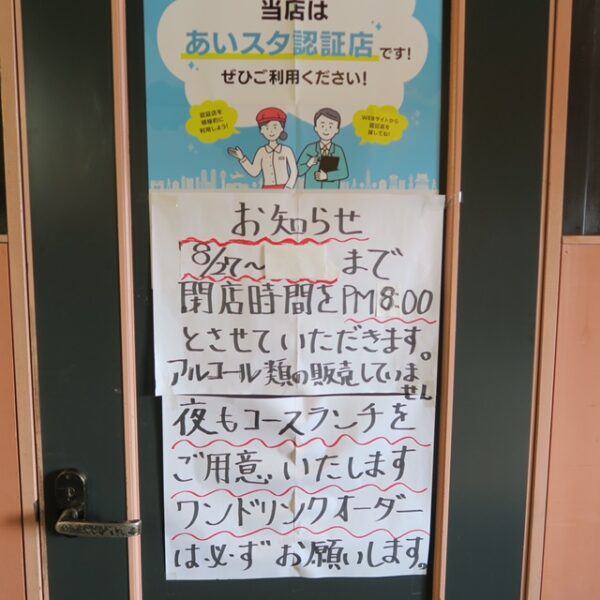 当店は
あいスタ認証店です!
ぜひご利用ください!
認証店を
積極的に
利用しよう!
WEBサイトから
認証店を
探してね!
お知らせ
8/27〜 まで
閉店時間をPM8:00
とさせていただきます。
アルコール類の販売していません
夜もコースランチを
ご用意いたします
ワンドリンクオーダー
は必ずお願いします。